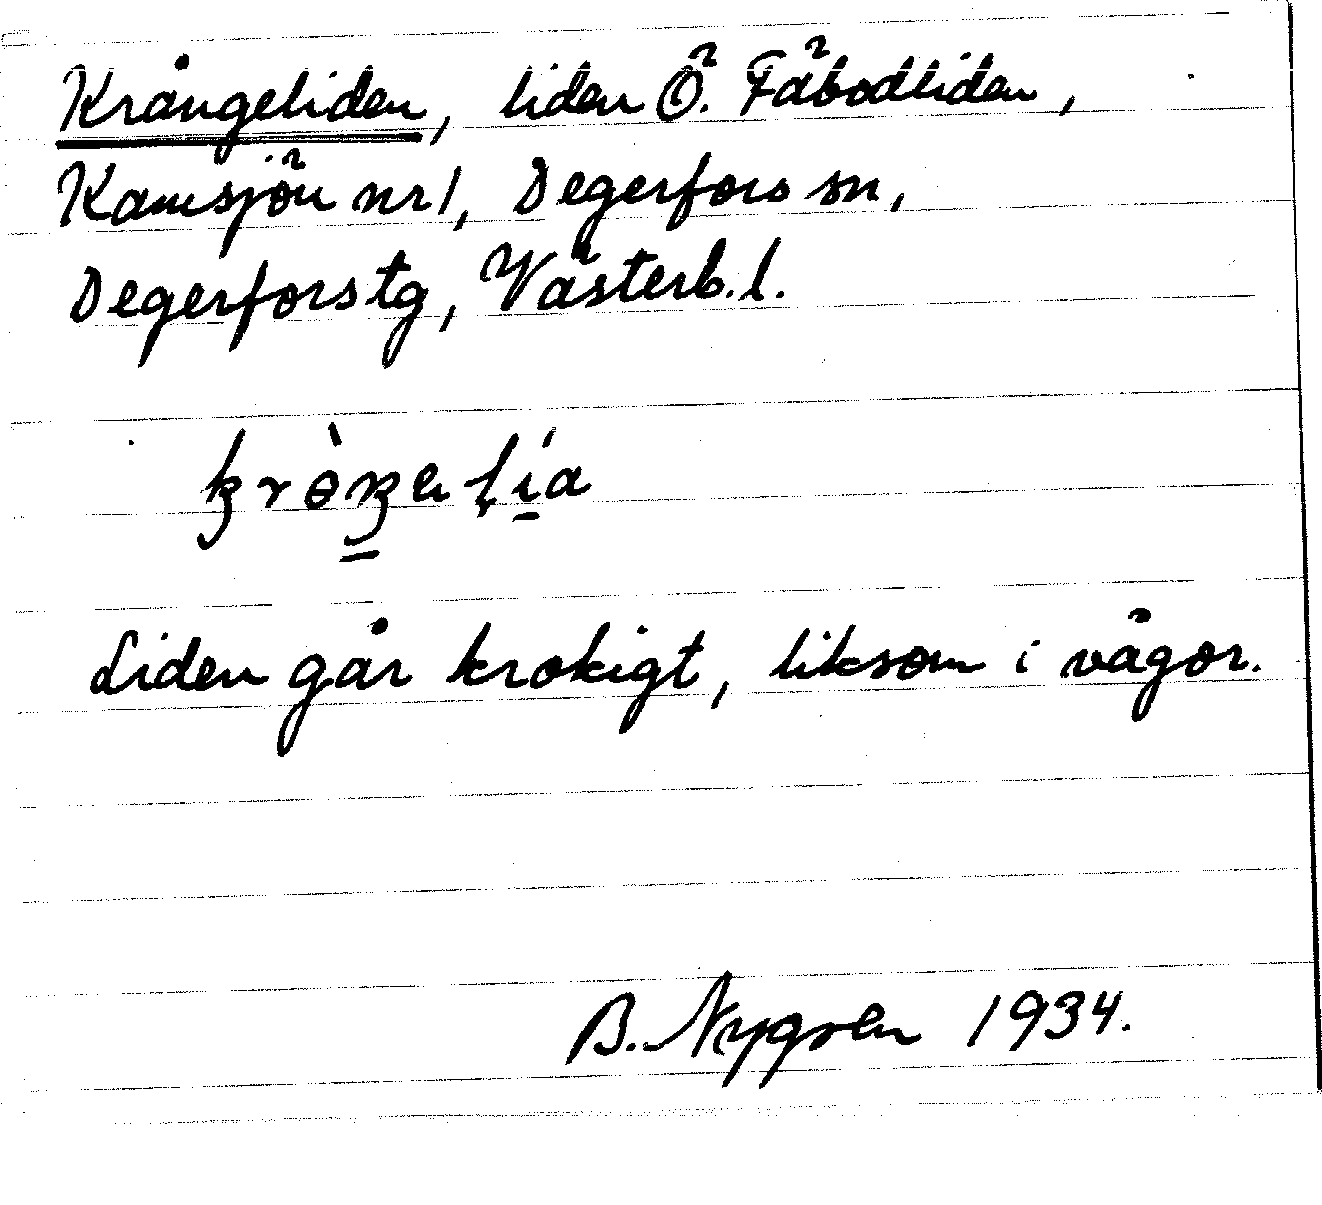 Krångeliden, liden Ö. Fäbodliden,
Kamsjön nr 1, Degerfors sn,
Degerfors tg, Västerb. l.
Liden går krokigt, liksom i vågor.
B. Nygren 1934.